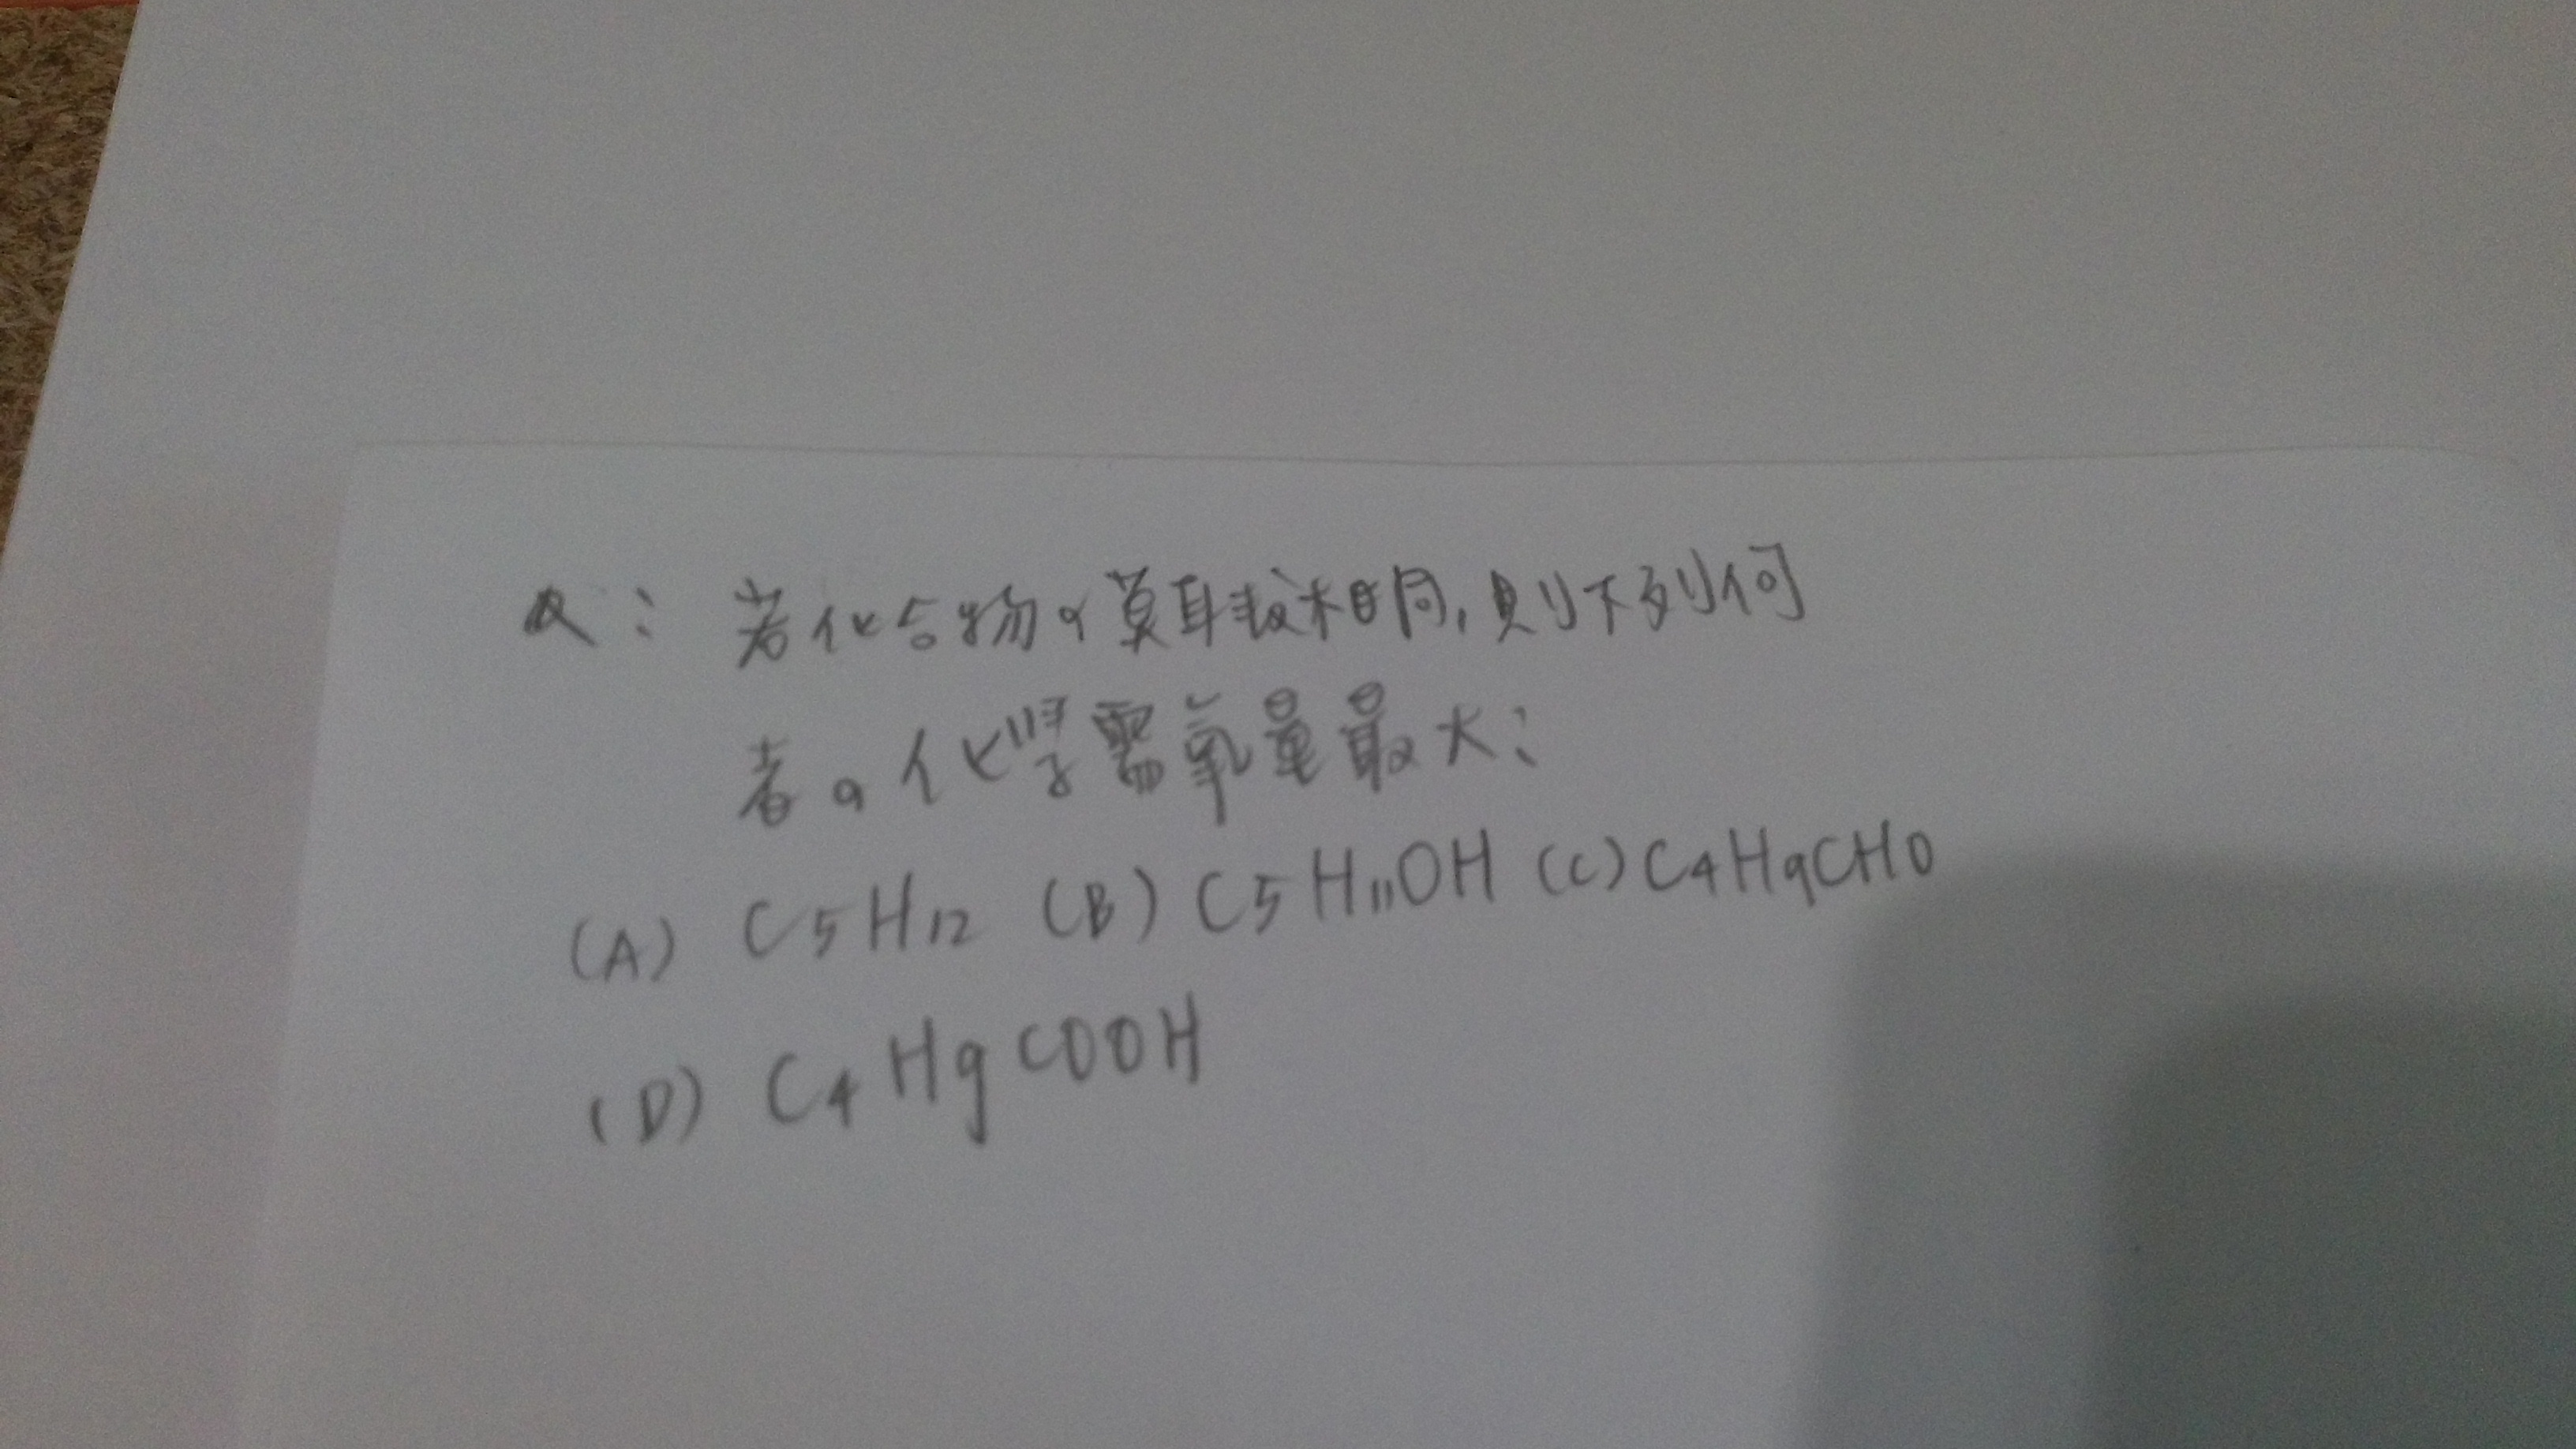 Q：若化合物の莫耳數相同，則下列何
者の化學需氧量最大：
(A) C5H12 (B) C5H11OH (C) C4H9CHO
(D) C4H9COOH